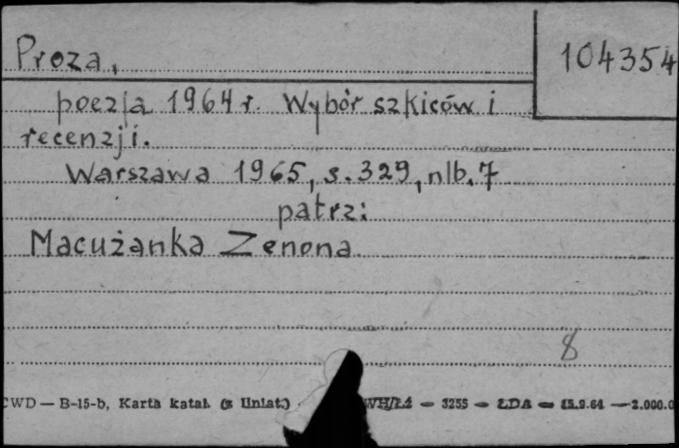 Proza, 104354
poezja 1964 r. Wybór szkiców i
recenzji.
Warszawa 1965, s. 329, nlb. 7
patrz:
Macużanka Zenona
8
CWD — B-15-b, Karta katal. (z Uniat.) WH/Łź — 3255 — ŁDA — 15.9.61 — 2.000.0